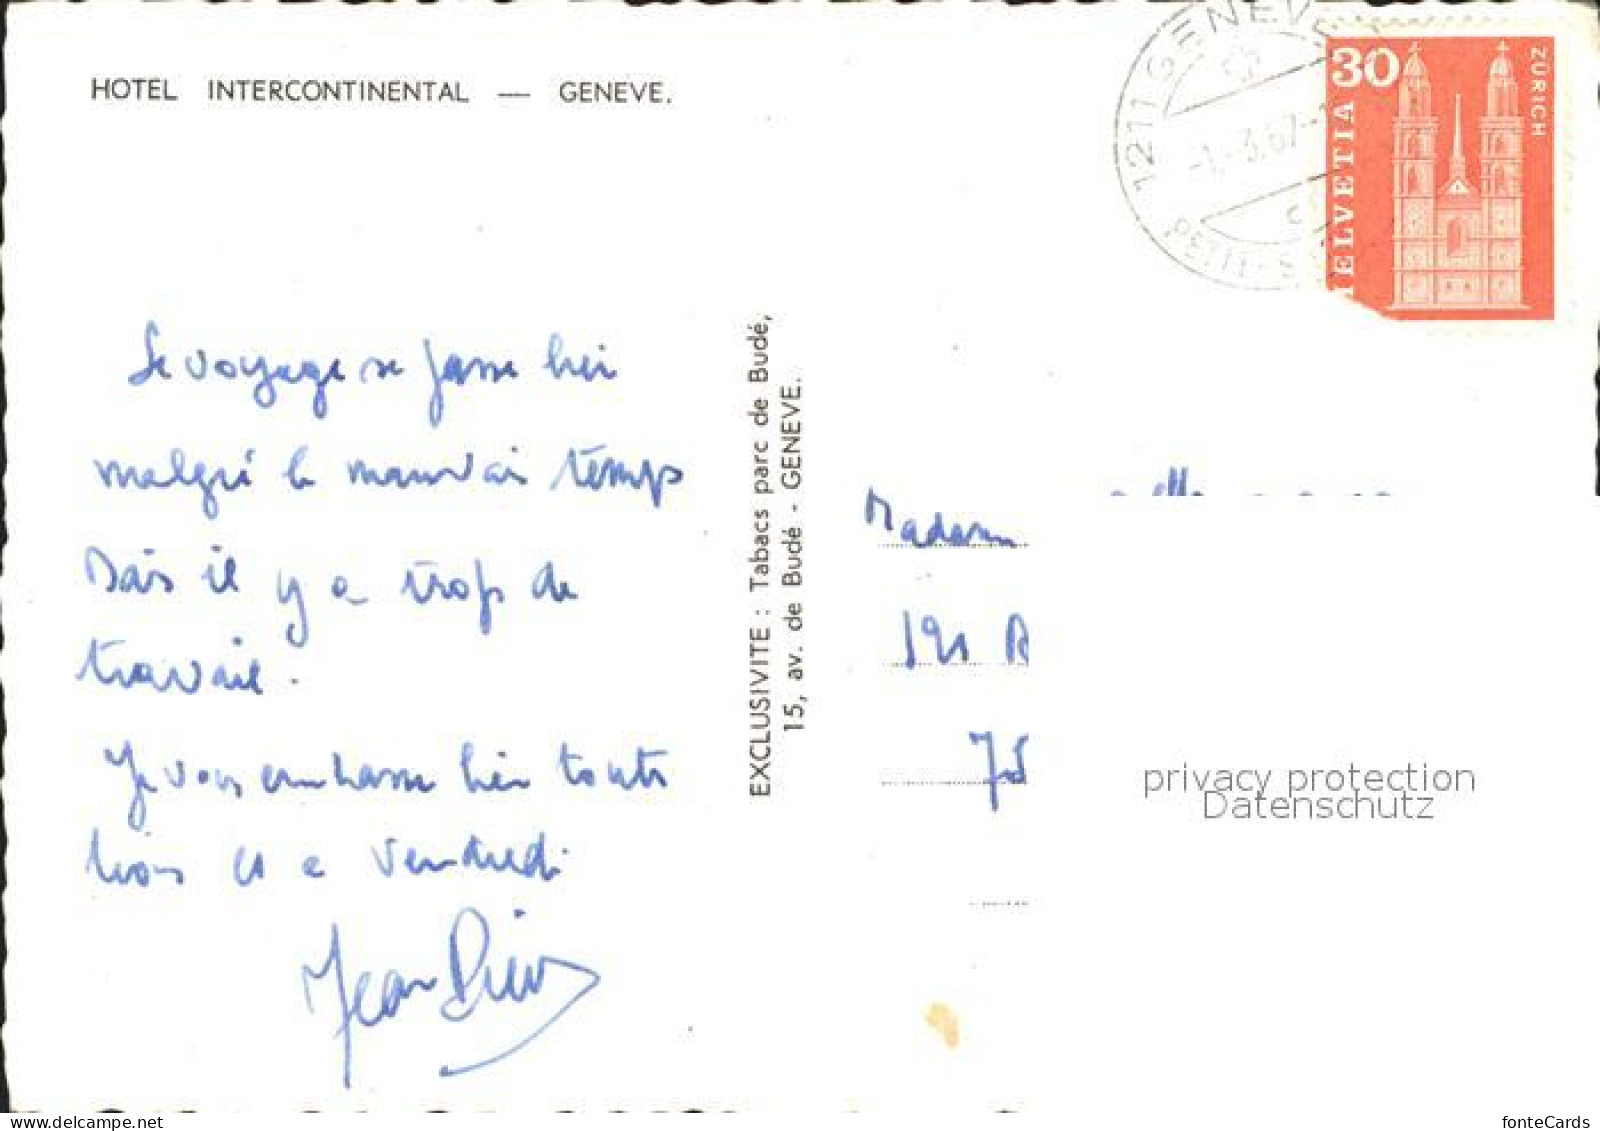 HOTEL INTERCONTINENTAL — GENEVE.
1211 GENEVE
-1.-3.67-1
c
PETIT-S
30
HELVETIA
ZÜRICH
Le voyage se passe bien
malgré le mauvais temps
Mais il y a trop de
travail.
Je vous embrasse bien toutes
trois et à vendredi
Jean Pierre
EXCLUSIVITE : Tabacs parc de Budé,
15, av. de Budé - GENEVE.
Madam
191 R
75
privacy protection
Datenschutz
delcampe.net
fonteCards